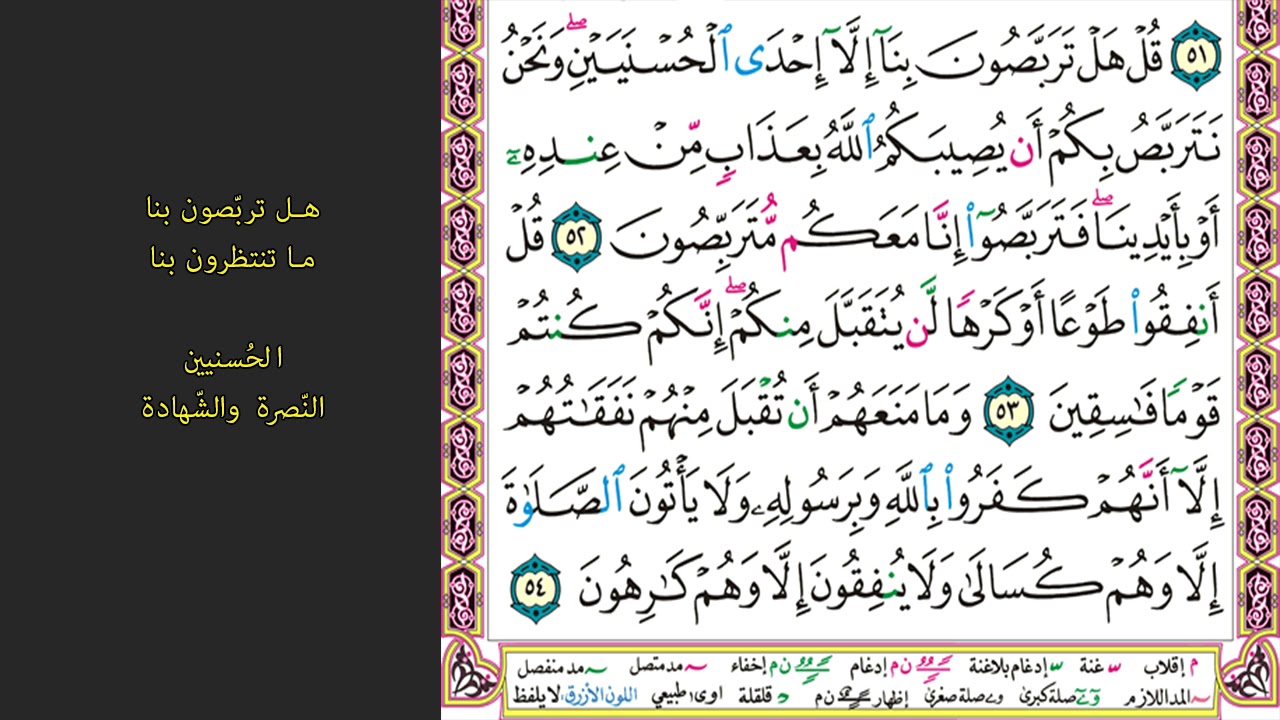 هـل تربّصون بنا
مـا تنتظرون بنا
الحُسنيين
النّصرة والشّهادة
٥١ قُلۡ هَلۡ تَرَبَّصُونَ بِنَآ إِلَّآ إِحۡدَى ٱلۡحُسۡنَيَيۡنِۖ وَنَحۡنُ
نَتَرَبَّصُ بِكُمۡ أَن يُصِيبَكُمُ ٱللَّهُ بِعَذَابٖ مِّنۡ عِندِهِۦٓ
أَوۡ بِأَيۡدِينَاۖ فَتَرَبَّصُوٓاْ إِنَّا مَعَكُم مُّتَرَبِّصُونَ ٥٢ قُلۡ
أَنفِقُواْ طَوۡعًا أَوۡ كَرۡهٗا لَّن يُتَقَبَّلَ مِنكُمۡۖ إِنَّكُمۡ كُنتُمۡ
قَوۡمٗا فَٰسِقِينَ ٥٣ وَمَا مَنَعَهُمۡ أَن تُقۡبَلَ مِنۡهُمۡ نَفَقَٰتُهُمۡ
إِلَّآ أَنَّهُمۡ كَفَرُواْ بِٱللَّهِ وَبِرَسُولِهِۦ وَلَا يَأۡتُونَ ٱلصَّلَوٰةَ
إِلَّا وَهُمۡ كُسَالَىٰ وَلَا يُنفِقُونَ إِلَّا وَهُمۡ كَٰرِهُونَ ٥٤
م إقلاب غنة إدغام بلاغنة ن م إدغام ن م إخفاء مد متصل مد منفصل
المد اللازم صلة كبرى صلة صغرى إظهار ن م قلقلة اوى طبيعي اللون الأزرق لا يلفظ